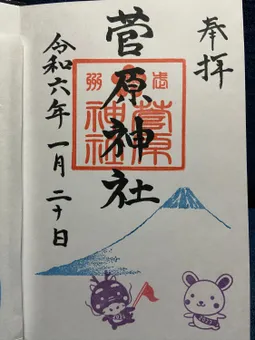 奉拝
菅原神社
菅原
神社
令和六年一月二十日